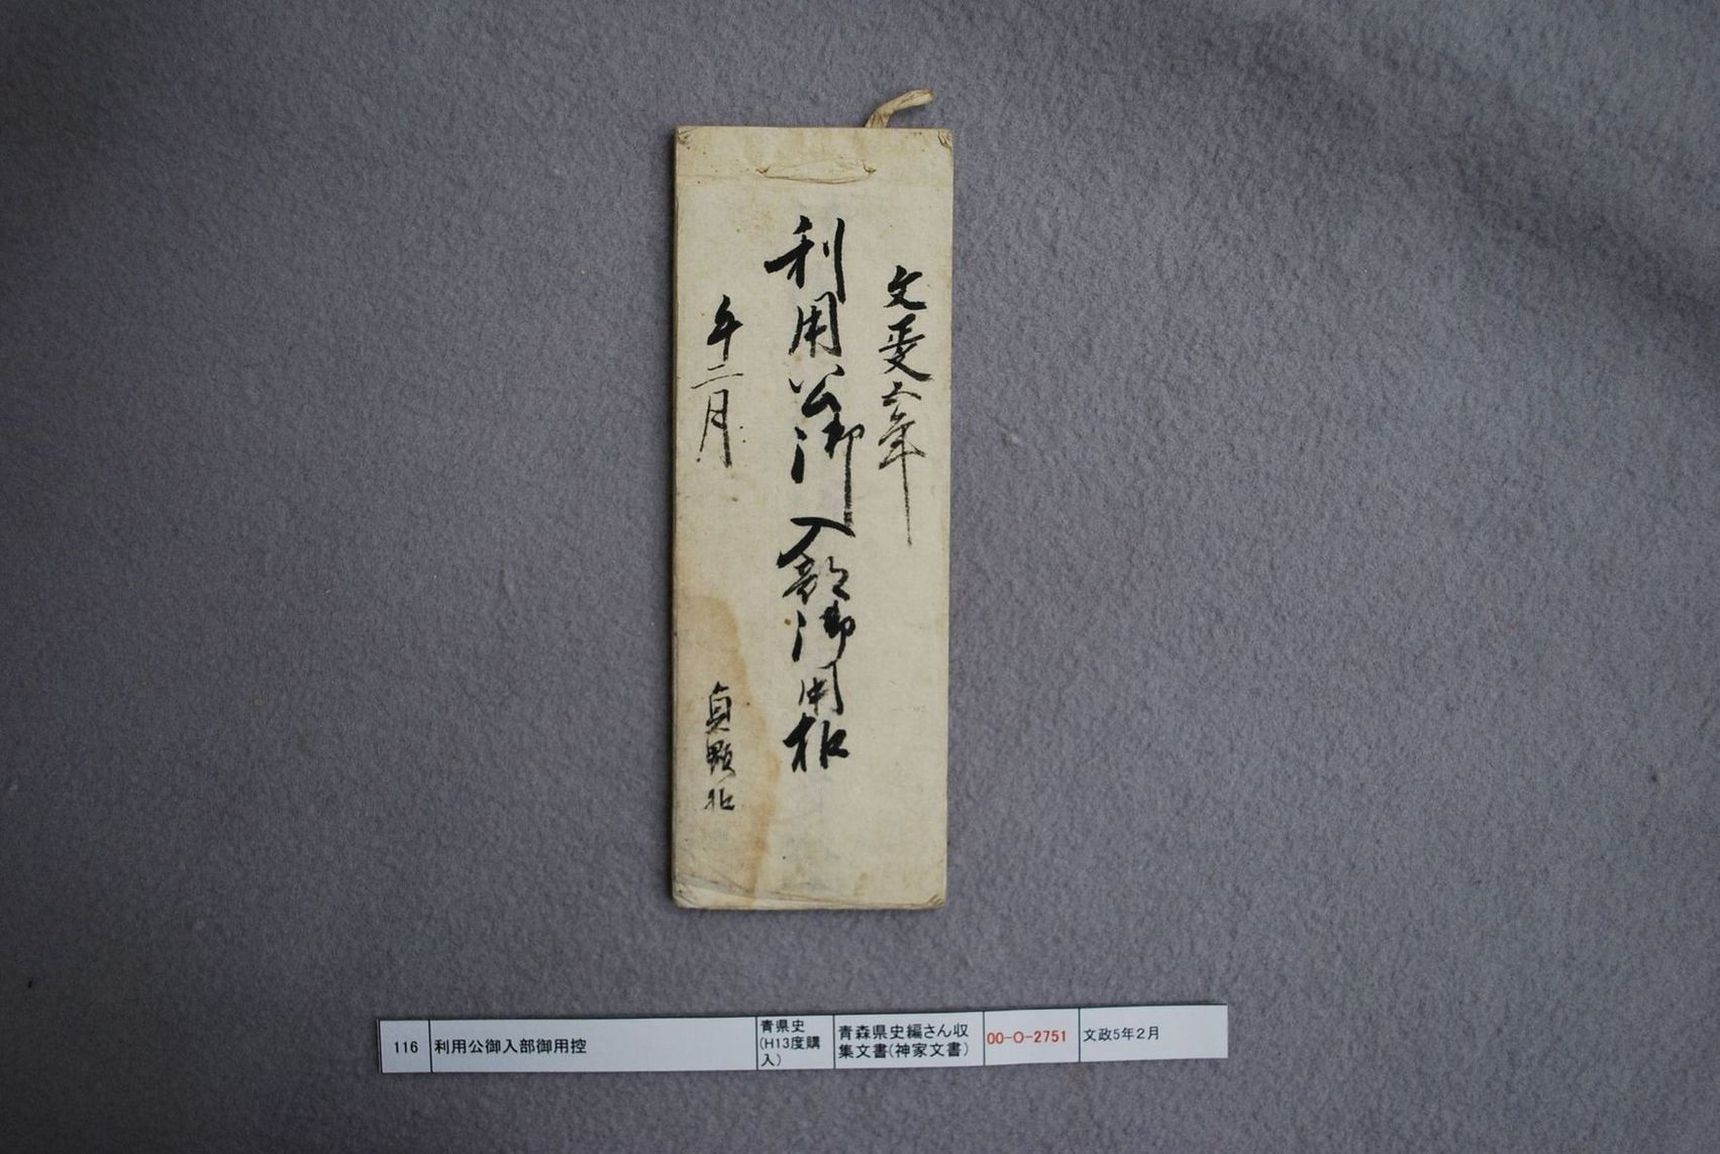 文政五年
利用公御入部御用控
午二月
貞顕控
116
利用公御入部御用控
青県史
(H13度購
入)
青森県史編さん収
集文書(神家文書)
00-O-2751
文政5年2月